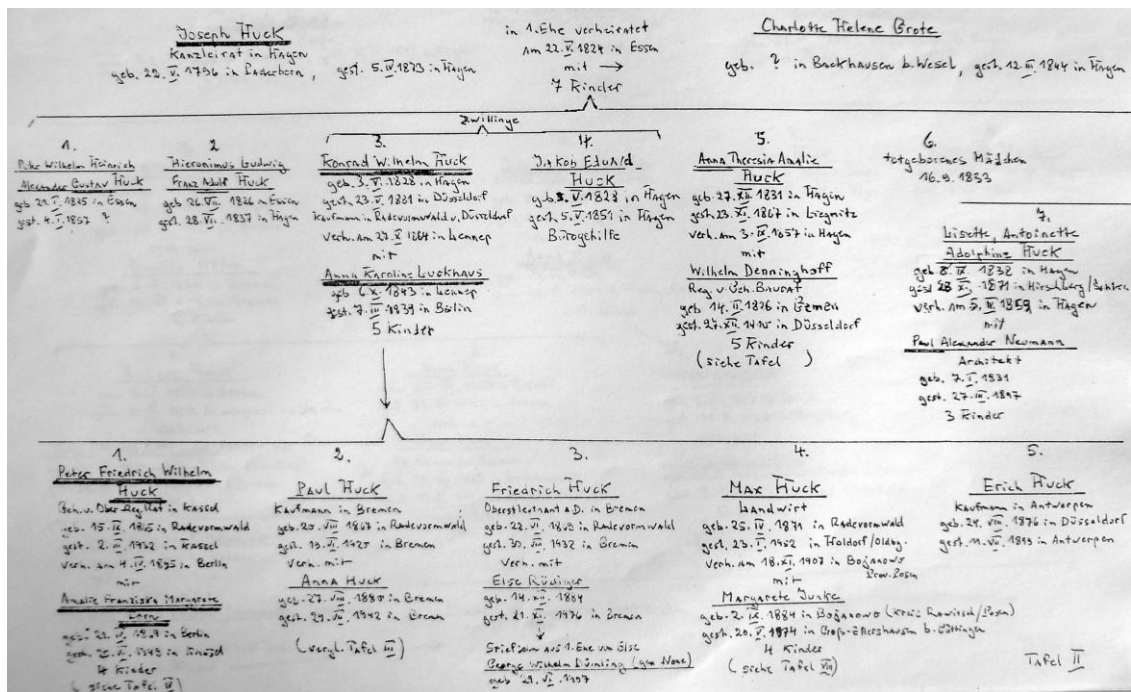 Joseph Huck
Kanzleirat in Hagen
geb. 22. V. 1796 in Paderborn, gest. 5. IV. 1873 in Hagen
in 1. Ehe verheiratet
am 22. V. 1824 in Essen
mit →
7 Kinder
Charlotte Helene Grote
geb. ? in Backhausen b. Wesel, gest. 12. III. 1844 in Hagen
Zwillinge
1.
Wilhelm Heinrich
Alexander Gustav Huck
geb. 1825 in Essen
gest. 4. I. 1857 ?
2
Hieronimus Ludwig
Franz Adolf Huck
geb. 26. VII. 1826 in Essen
gest. 28. VI. 1837 in Hagen
3.
Konrad Wilhelm Huck
geb. 3. V. 1828 in Hagen
gest. 23. V. 1881 in Düsseldorf
Kaufmann in Radevormwald u. Düsseldorf
verh. am 27. X 1864 in Lennep
mit
Anna Karoline Luckhaus
geb. 6. X. 1843 in Lennep
gest. 7. III. in Berlin
5 Kinder
4.
Jakob Eduard
Huck
geb. 3. V. 1828 in Hagen
gest. 5. V. 1851 in Hagen
Bürogehilfe
5.
Anna Theresia Amalie
Huck
geb. 27. XII 1831 in Hagen
gest. 23. XI. 1867 in Liegnitz
verh. am 3. IX. 1857 in Hagen
mit
Wilhelm Denninghoff
Reg. u. Geh. Baurat
geb. 14. II. 1826 in
gest. 27. XII. in Düsseldorf
5 Kinder
(siehe Tafel )
6.
totgeborenes Mädchen
16. 9. 1833
7.
Lisette, Antoinette
Adolphine Huck
geb. 8. IX. in Hagen
gest. 28 XI. 1871 in Hirschberg/Schles.
verh. am 5. 1859 in Hagen
mit
Paul Alexander Neumann
Architekt
geb. 7. I. 1831
gest. 27. III. 1897
3 Kinder
1.
Peter Friedrich Wilhelm
Huck
Geh. u. Ober Reg. Rat in Kassel
geb. 15. IX 1865 in Radevormwald
gest. 2. in Kassel
verh. am 4. IV. 1895 in Berlin
mit
Amalie Franziska Margarete
geb. 21. IV. in Berlin
gest. in Kassel
4 Kinder
(siehe Tafel IV)
2.
Paul Huck
Kaufmann in Bremen
geb. 20. VIII 1867 in Radevormwald
gest. 19. VI. in Bremen
verh. mit
Anna Huck
geb. 27. VIII. 1880 in Bremen
gest. 29. VII. 1942 in Bremen
(vergl. Tafel III)
3.
Friedrich Huck
Oberstleutnant a.D. in Bremen
geb. 22. VI. 1869 in Radevormwald
gest. 30. VIII. 1932 in Bremen
verh. mit
Else Rüdiger
geb. 14. 1884
gest. 21. XI. 1976 in Bremen
Stiefsohn aus 1. Ehe von Else
Georg Wilhelm Dümling (gen. None)
geb. 29. VI.
4.
Max Huck
Landwirt
geb. 25. IV. 1871 in Radevormwald
gest. 23. I. 1952 in Holdorf/Oldbg.
verh. am 18. XI. 1907 in Bojanowo
Prov. Posen
mit
Margarete Junke
geb. 2. IX. 1884 in Bojanowo (Kreis Rawitsch/Posen)
gest. 20. V. 1974 in Groß-Ellershausen b. Göttingen
4 Kinder
(siehe Tafel VIII)
5.
Erich Huck
Kaufmann in Antwerpen
geb. 24. VIII. 1876 in Düsseldorf
gest. 11. VIII. 1899 in Antwerpen
Tafel II